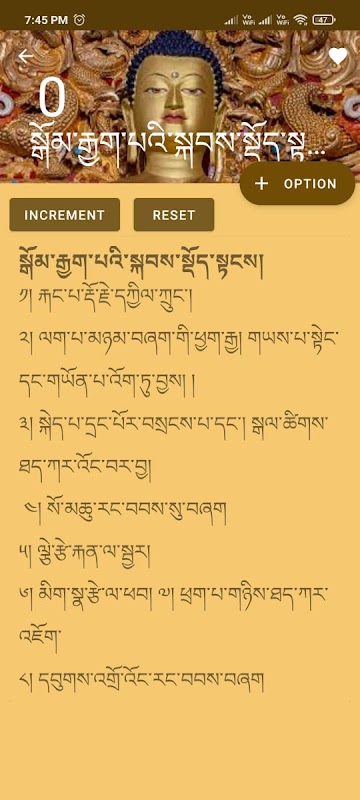 7:45 PM
Vo WiFi
Vo WiFi
47
0
སྒོམ་རྒྱག་པའི་སྐབས་སྡོད་སྟ...
+ OPTION
INCREMENT
RESET
སྒོམ་རྒྱག་པའི་སྐབས་སྡོད་སྟངས།
༡། རྐང་པ་རྡོ་རྗེ་དཀྱིལ་ཀྲུང་།
༢། ལག་པ་མཉམ་བཞག་གི་ཕྱག་རྒྱ། གཡས་པ་སྟེང་
དང་གཡོན་པ་འོག་ཏུ་བྱས། །
༣། སྐེད་པ་དྲང་པོར་བསྲངས་པ་དང་། སྒལ་ཚིགས་
ཐད་ཀར་འོང་བར་བྱ།
༤། སོ་མཆུ་རང་བབས་སུ་བཞག
༥། ལྕེ་རྩེ་རྐན་ལ་སྦྱར།
༦། མིག་སྣ་རྩེ་ལ་ཕབ། ༧། ཕྲག་པ་གཉིས་ཐད་ཀར་
འཇོག་
༨། དབུགས་འགྲོ་འོང་རང་བབས་བཞག